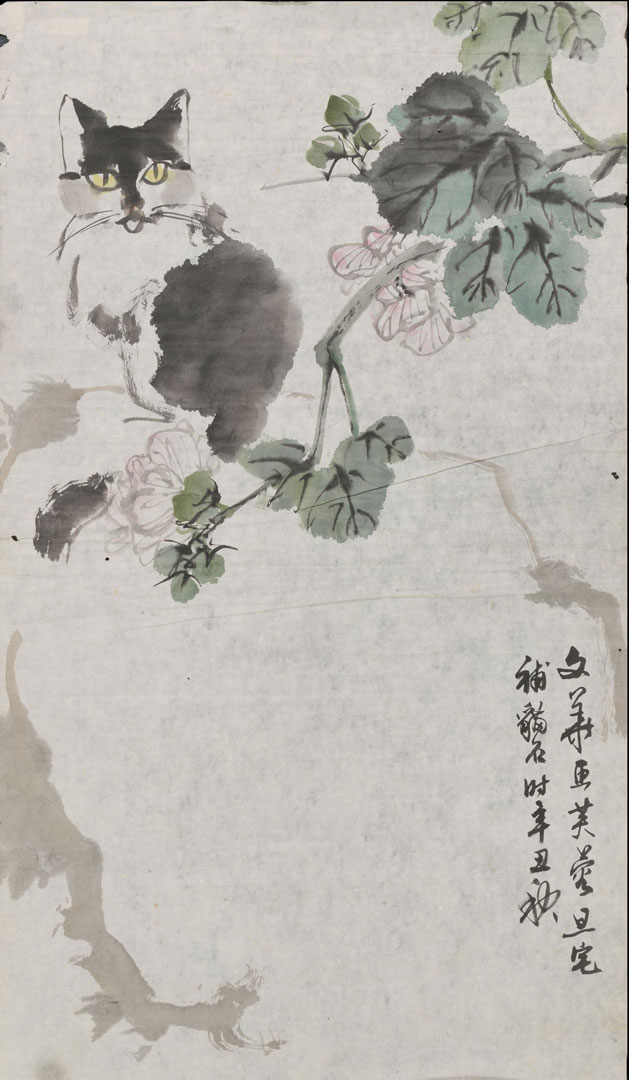 文華画芙蓉旦宅
補貓石时辛丑秋